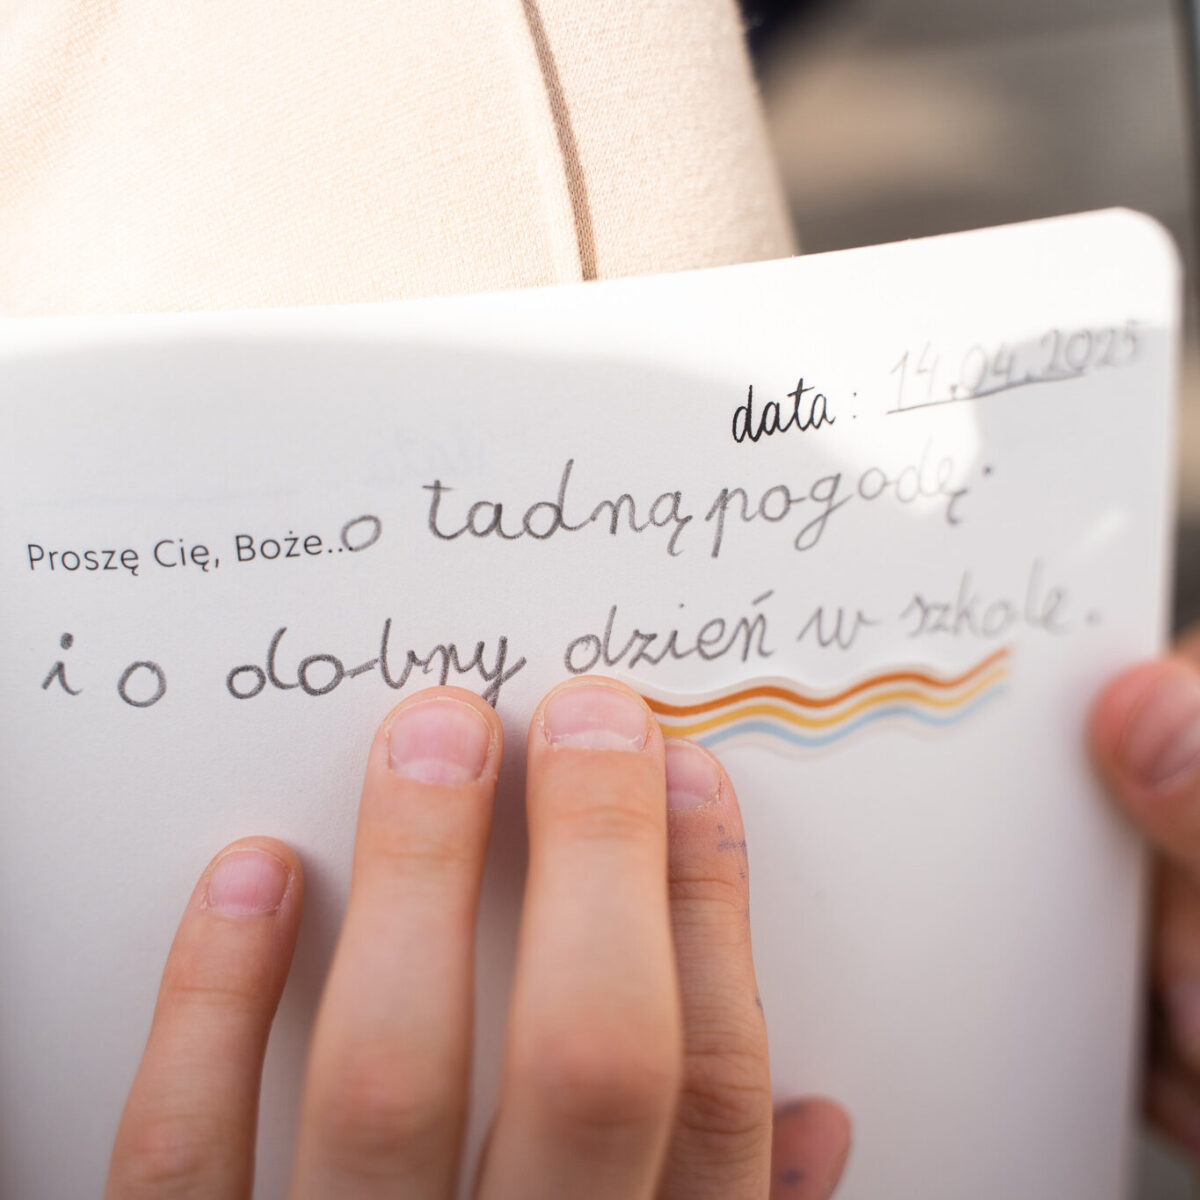 data: 14.04.2025
Proszę Cię, Boże... o ładną pogodę.
i o dobry dzień w szkole.